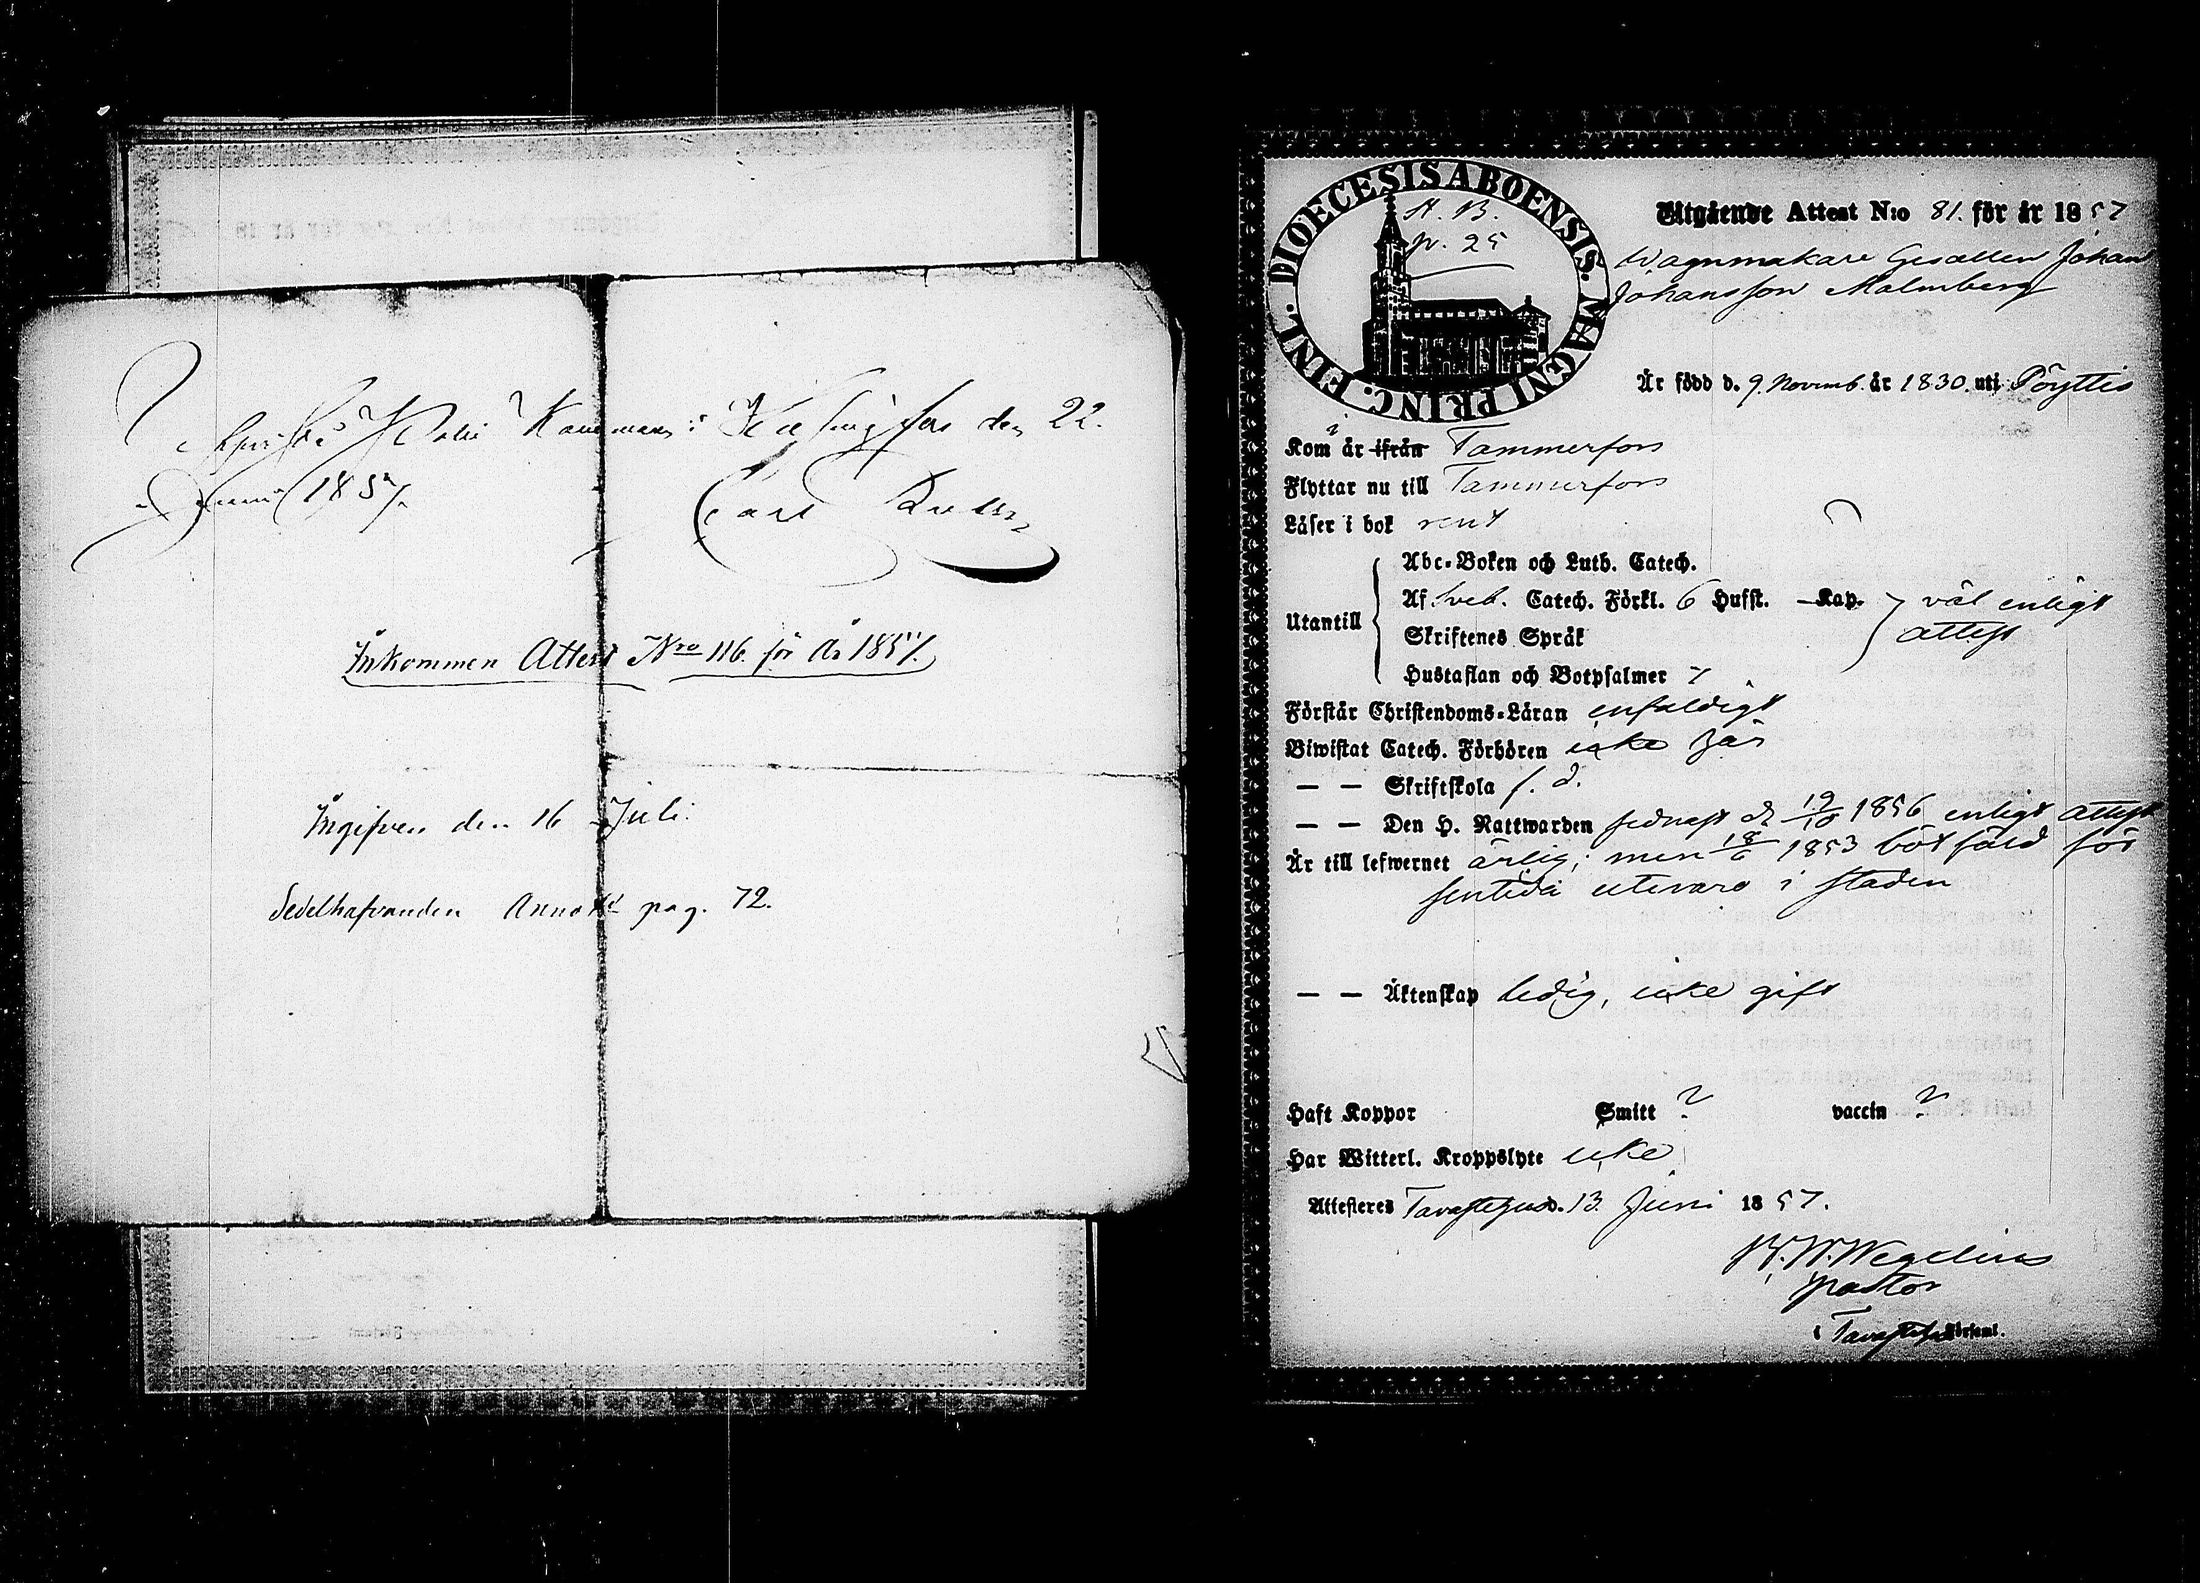 i Helsingfors den 22.
Juni 1857.
Carl
Inkommen Attest Nro 116. för År 1857.
Ingifven den 16 Juli.
Sedelhafvanden Annott pag. 72.
DIOECESIS ABOENSIS. MAGNI PRINC. FINL.
H. B.
p. 25
Utgående Attest N:o 81. för år 1857
Wagnmakare Gesällen Johan
Johansson Malmberg
Är född d. 9. Novemb. år 1830. uti Pöyttis
Kom år ifrån Tammerfors
Flyttar nu till Tammerfors
Läser i bok rent
Utantill
Abc-Boken och Luth. Catech.
Af Sveb. Catech. Förkl. 6 Hufst. — Kap.
Skriftenes Språk
Hustaflan och Botpsalmer
väl enligt
attest
Förstår Christendoms-Läran enfaldigt
Biwistat Catech. Förhören icke här
— — Skriftskola f. d.
— — Den H. Nattwarden sednast d 19/10 1856 enligt attest
Är till lefwernet ärlig; men 18/6 1853 bötfäld för
sentida utevaro i staden
— — Äktenskap ledig, icke gift
Haft Koppor Smitt ? vaccin ?
Har Witterl. Kroppslyte icke
Attesteres Tavastehus d. 13. Juni 1857.
Wegelius
pastor
i Tavastehus Församl.